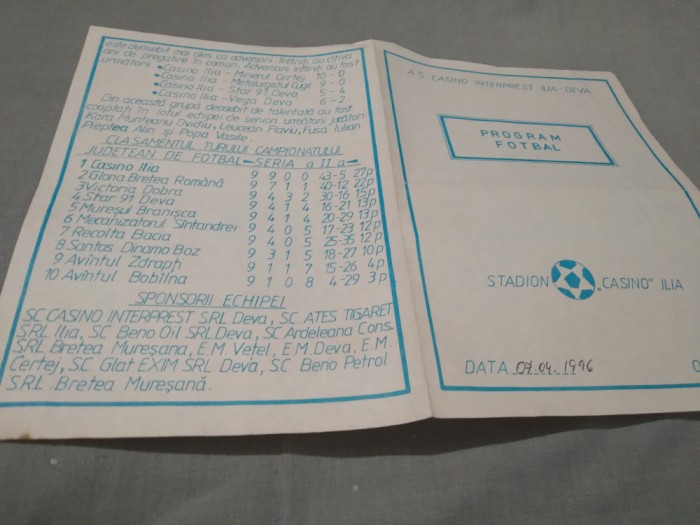 este deosebit mai ales ca adversarii întîlniți au cîțiva
ani de pregatire în comun. Adversarii întîlniți au fost
următorii •Casino Ilia - Minerul Certej 10 - 0
•Casino Ilia - Metalurgistul Cugir 9 - 0
•Casino Ilia - Star 91 Deva 5 - 4
•Casino Ilia - Vega Deva 6 - 2
Din această grupă deosebit de talentată au fost
cooptați în lotul echipei de seniori următorii jucători
Kara Munteanu Ovidiu, Leucean Flaviu, Fusa Iulian
Pleptea Alin și Popa Vasile.
CLASAMENTUL TURULUI CAMPIONATULUI
JUDEȚEAN DE FOTBAL - SERIA a II a -
1 Casino Ilia 9 9 0 0 43-5 27p
2 Gloria Bretea Română 9 7 1 1 40-12 22p
3 Victoria Dobra 9 4 3 2 30-16 15p
4 Star 91 Deva 9 4 1 4 16-21 13p
5 Mureșul Branișca 9 4 1 4 20-29 13p
6 Mecanizatorul Sîntandrei 9 4 0 5 17-23 12p
7 Recolta Bacia 9 4 0 5 25-35 12p
8 Santos Dinamo Boz 9 3 1 5 18-27 10p
9 Avîntul Zdrapți 9 1 1 7 15-26 4p
10 Avîntul Bobîlna 9 1 0 8 4-29 3p
SPONSORII ECHIPEI
SC CASINO INTERPREST SRL Deva, SC ATES TIGARET
SRL Ilia, SC Beno Oil SRL Deva, SC Ardeleana Cons-
SRL Bretea Mureșana, E.M. Vețel, E.M. Deva, E.M.
Certej, SC Glat EXIM SRL Deva, SC Beno Petrol
SRL Bretea Mureșană.
A.S. CASINO INTERPREST ILIA - DEVA
PROGRAM
FOTBAL
STADION „CASINO" ILIA
DATA 07.04.1996 O